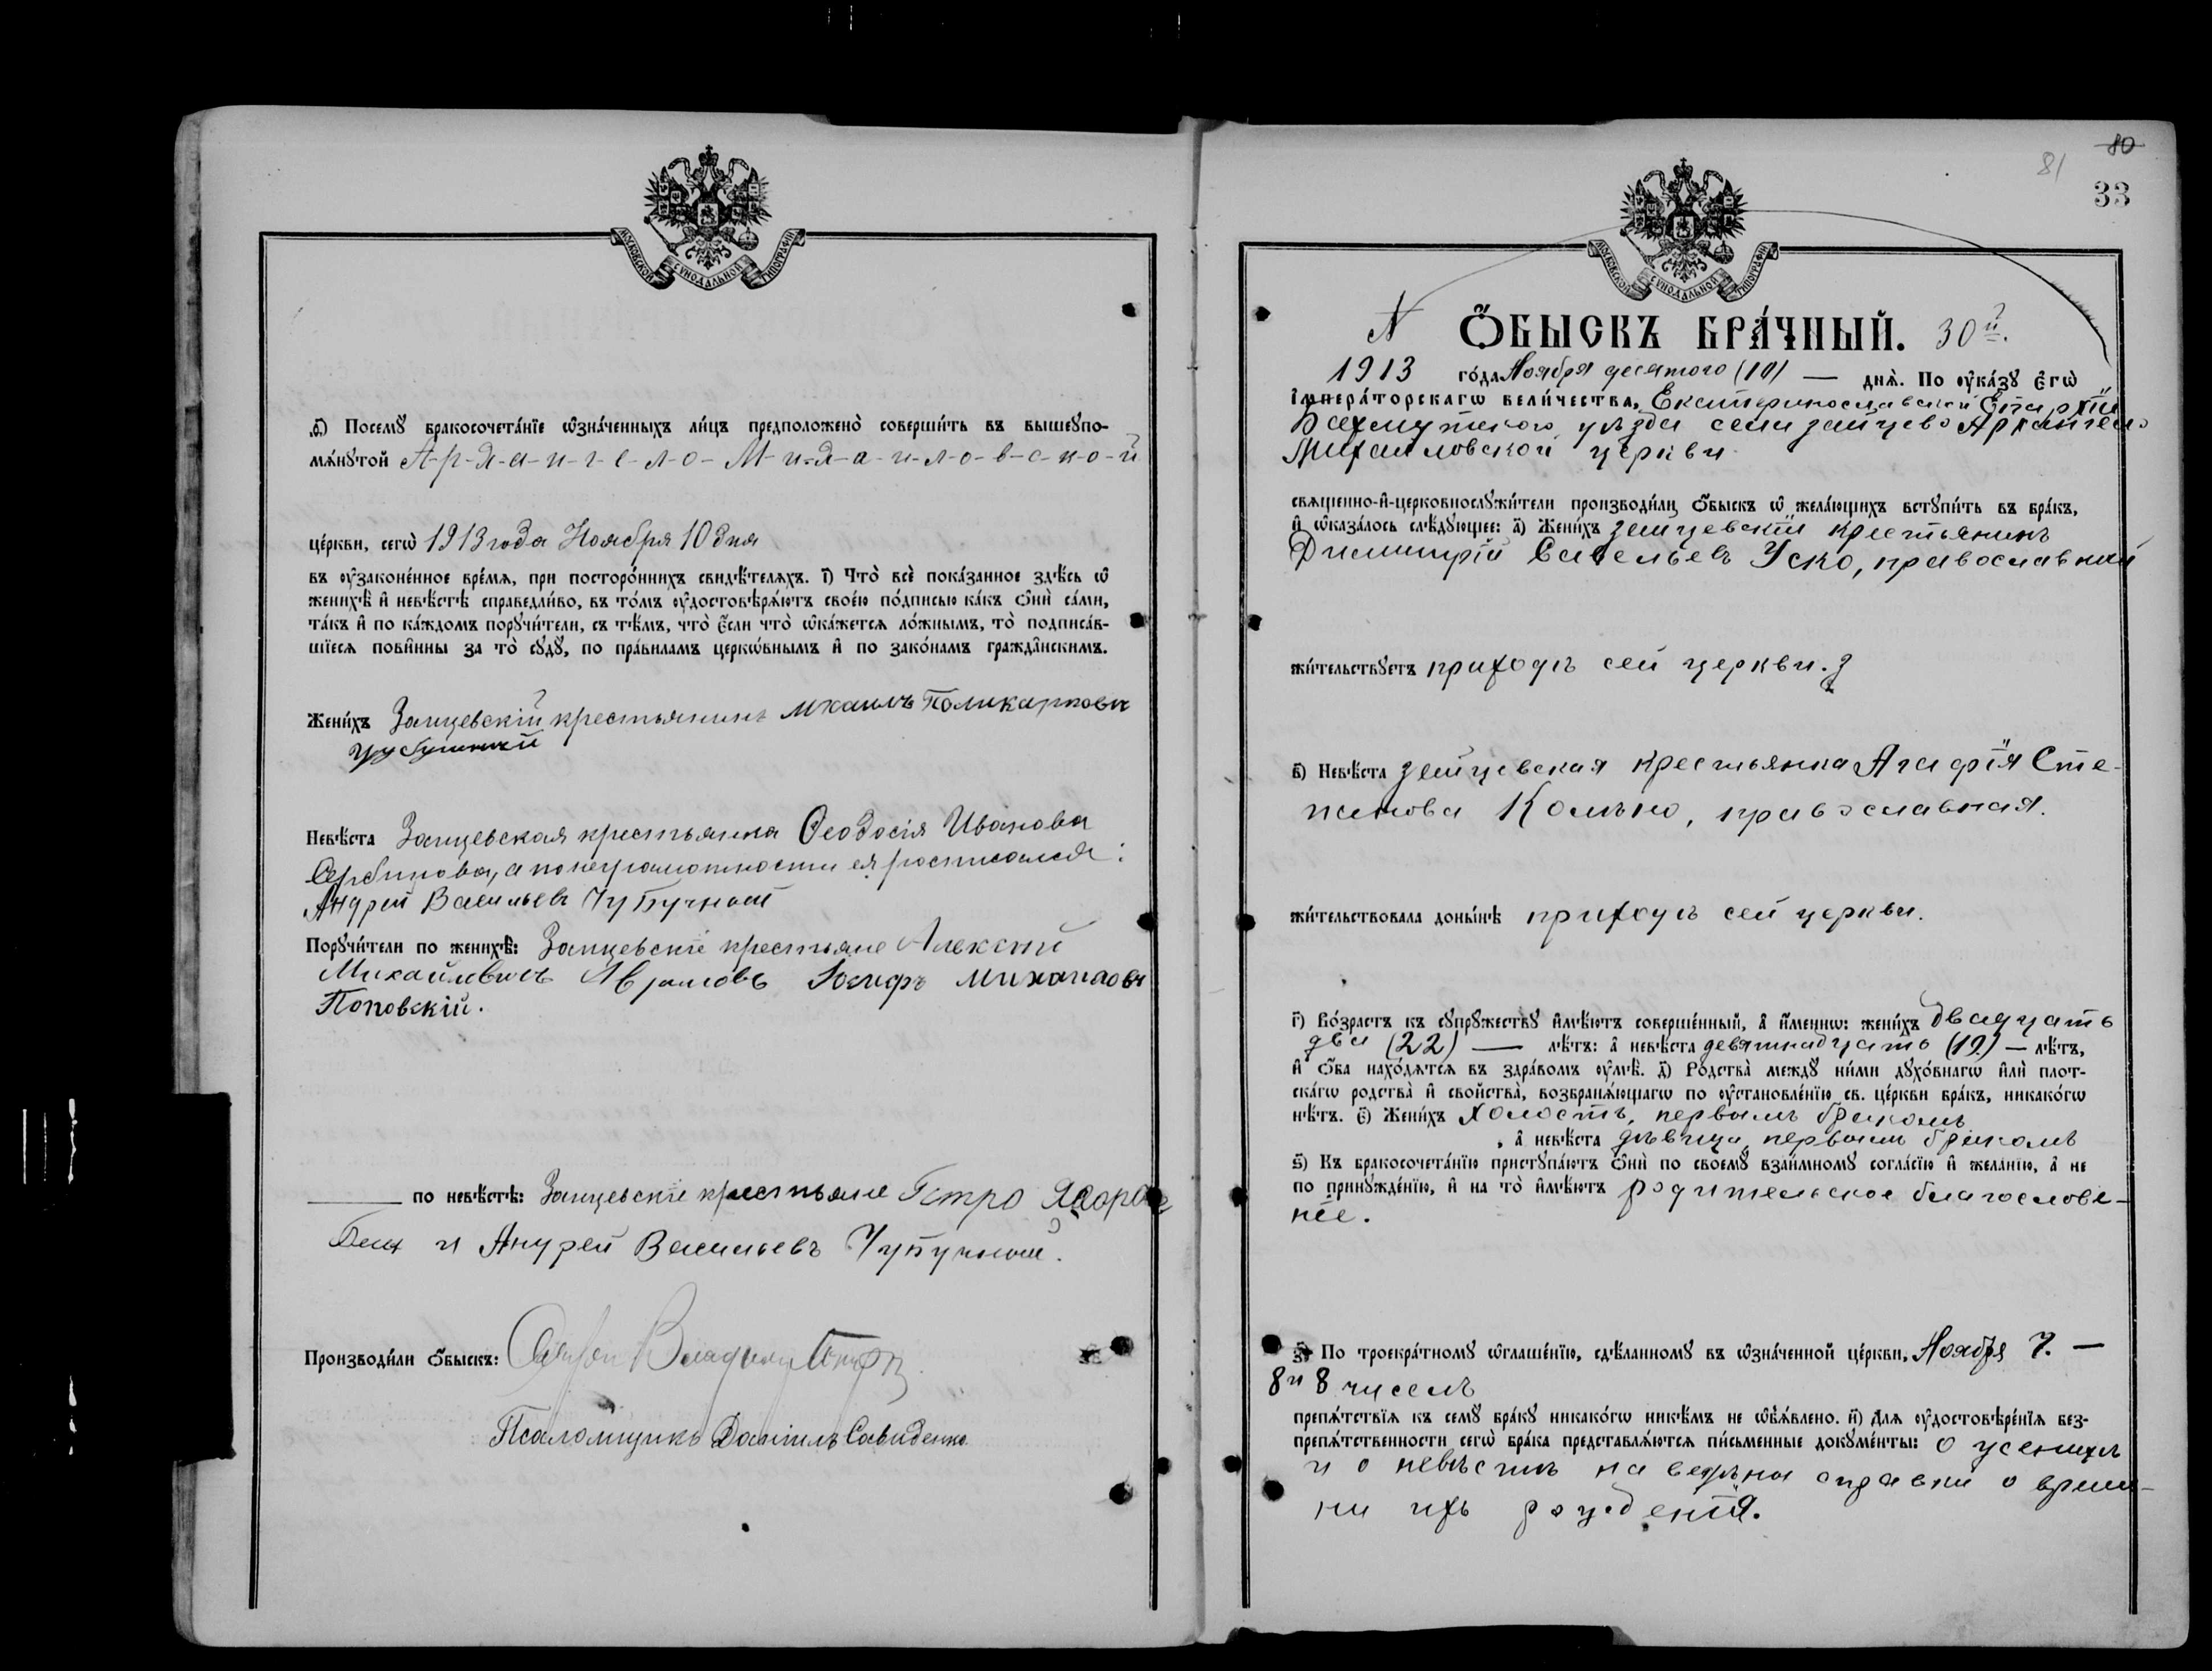 МОСКОВСКОЙ СѴНОДАЛЬНОЙ ТИПОГРАФІИ
ѳ҃) Посемꙋ̀ бракосочета́нїе ѡ҆зна́ченныхъ ли́цъ предположено̀ соверши́ть въ вышеꙋпо-
мѧ́нꙋтой А-р-х-а-н-г-е-л-о- М-и-х-а-и-л-о-в-с-к-о-й
це́ркви, сегѡ̀ 1913 года Ноября 10 дня
въ ᲂу҆законе́нное вре́мѧ, при посторо́ннихъ свидѣ́телѧхъ. і҃) Что̀ всѐ пока́занное здѣ́сь ѡ҆
женихѣ̀ и҆ невѣ́стѣ справедли́во, въ то́мъ ᲂу҆достовѣрѧ́ютъ свое́ю по́дписью ка́къ ѻ҆нѝ са́ми,
та́къ и҆ по ка́ждомъ порꙋчи́тели, съ тѣ́мъ, что̀ є҆́сли что̀ ѡ҆ка́жетсѧ ло́жнымъ, то̀ подписа́в-
шїесѧ пови́нны за то̀ сꙋдꙋ̀, по пра́виламъ церко́внымъ и҆ по зако́намъ гражда́нскимъ.
Жени́хъ Зайцевскій крестьянинъ михаилъ Поликарпович
Невѣ́ста Зайцевская крестьянка Ѳеодосія Иванова
Сербинова, а по неграмотности ея росписался:
Андрей Васильевъ Чупучной
Порꙋчи́тели по женихѣ̀: Зайцевскіе крестьяне Алексей
Михайловичъ Аврамовъ Іосифъ михаилов
Поповскій.
по невѣ́стѣ: Зайцевскіе крестьяне Петро
и Андрей Васильевъ Чупучной.
Производи́ли ѻ҆́быскъ: Владимиръ
Псаломщикъ Даніилъ Савиденко
80
81
33
МОСКОВСКОЙ СѴНОДАЛЬНОЙ ТИПОГРАФІИ
N ѺБЫСКЪ БРА́ЧНЫЙ. 30й.
1913 го́да Ноября десятого (10) — днѧ̀. По ᲂу҆ка́зꙋ є҆гѡ̀
і҆мпера́торскагѡ вели́чества, Екатеринославской Епархіи
Бахмутского уѣзда села зайцево Архангело
Михаиловской церкви
свѧщенно-и҆-церковнослꙋжи́тели производи́ли ѻ҆́быскъ ѡ҆ жела́ющихъ встꙋпи́ть въ бра́къ,
и҆ ѡ҆каза́лось слѣ́дꙋющее: а҃) Жени́хъ зайцевскій крестьянинъ
Димитрій Савельевъ Уско, православный
жи́тельствꙋетъ приходъ сей церкви.
в҃) Невѣ́ста зайцевская крестьянка Агафія Сте-
панова Колѣно, православная.
жи́тельствовала доны́нѣ приходъ сей церкви.
г҃) Во́зрастъ къ сꙋпрꙋ́жествꙋ и҆мѣ́ютъ соверше́нный, а҆ и҆́меннѡ: жени́хъ двадцать
два (22) — лѣ́тъ: а҆ невѣ́ста девятнадцать (19) — лѣ́тъ,
и҆ ѻ҆́ба нахо́дѧтсѧ въ здра́вомъ ᲂу҆мѣ̀. д҃) Родства̀ междꙋ̀ ни́ми дꙋхо́внагѡ и҆лѝ плот-
ска́гѡ родства̀ и҆ свойства̀, возбранѧ́ющагѡ по ᲂу҆становле́нїю св. це́ркви бра́къ, никако́гѡ
нѣ́тъ. є҃) Жени́хъ холостъ, первымъ бракомъ
, а҆ невѣ́ста дѣвица, первымъ бракомъ
ѕ҃) Къ бракосочета́нїю пристꙋпа́ютъ ѻ҆нѝ по своемꙋ̀ взаи́мномꙋ согла́сїю и҆ жела́нїю, а҆ не
по принꙋжде́нїю, и҆ на то̀ и҆мѣ́ютъ родительское благослове-
ніе.
з҃) По троекра́тномꙋ ѡ҆глаше́нїю, сдѣ́ланномꙋ въ ѡ҆зна́ченной це́ркви, Ноября 7. —
8 и 8 чиселъ
препѧ́тствїѧ къ семꙋ̀ бра́кꙋ никако́гѡ никѣ́мъ не ѡ҆б̾ѧ́влено. и҃) Длѧ ᲂу҆достовѣре́нїѧ без-
препѧ́тственности сегѡ̀ бра́ка представлѧ́ютсѧ пи́сьменные докꙋме́нты: о женихѣ
и о невѣстѣ наведены справки о време-
ни ихъ рожденія.